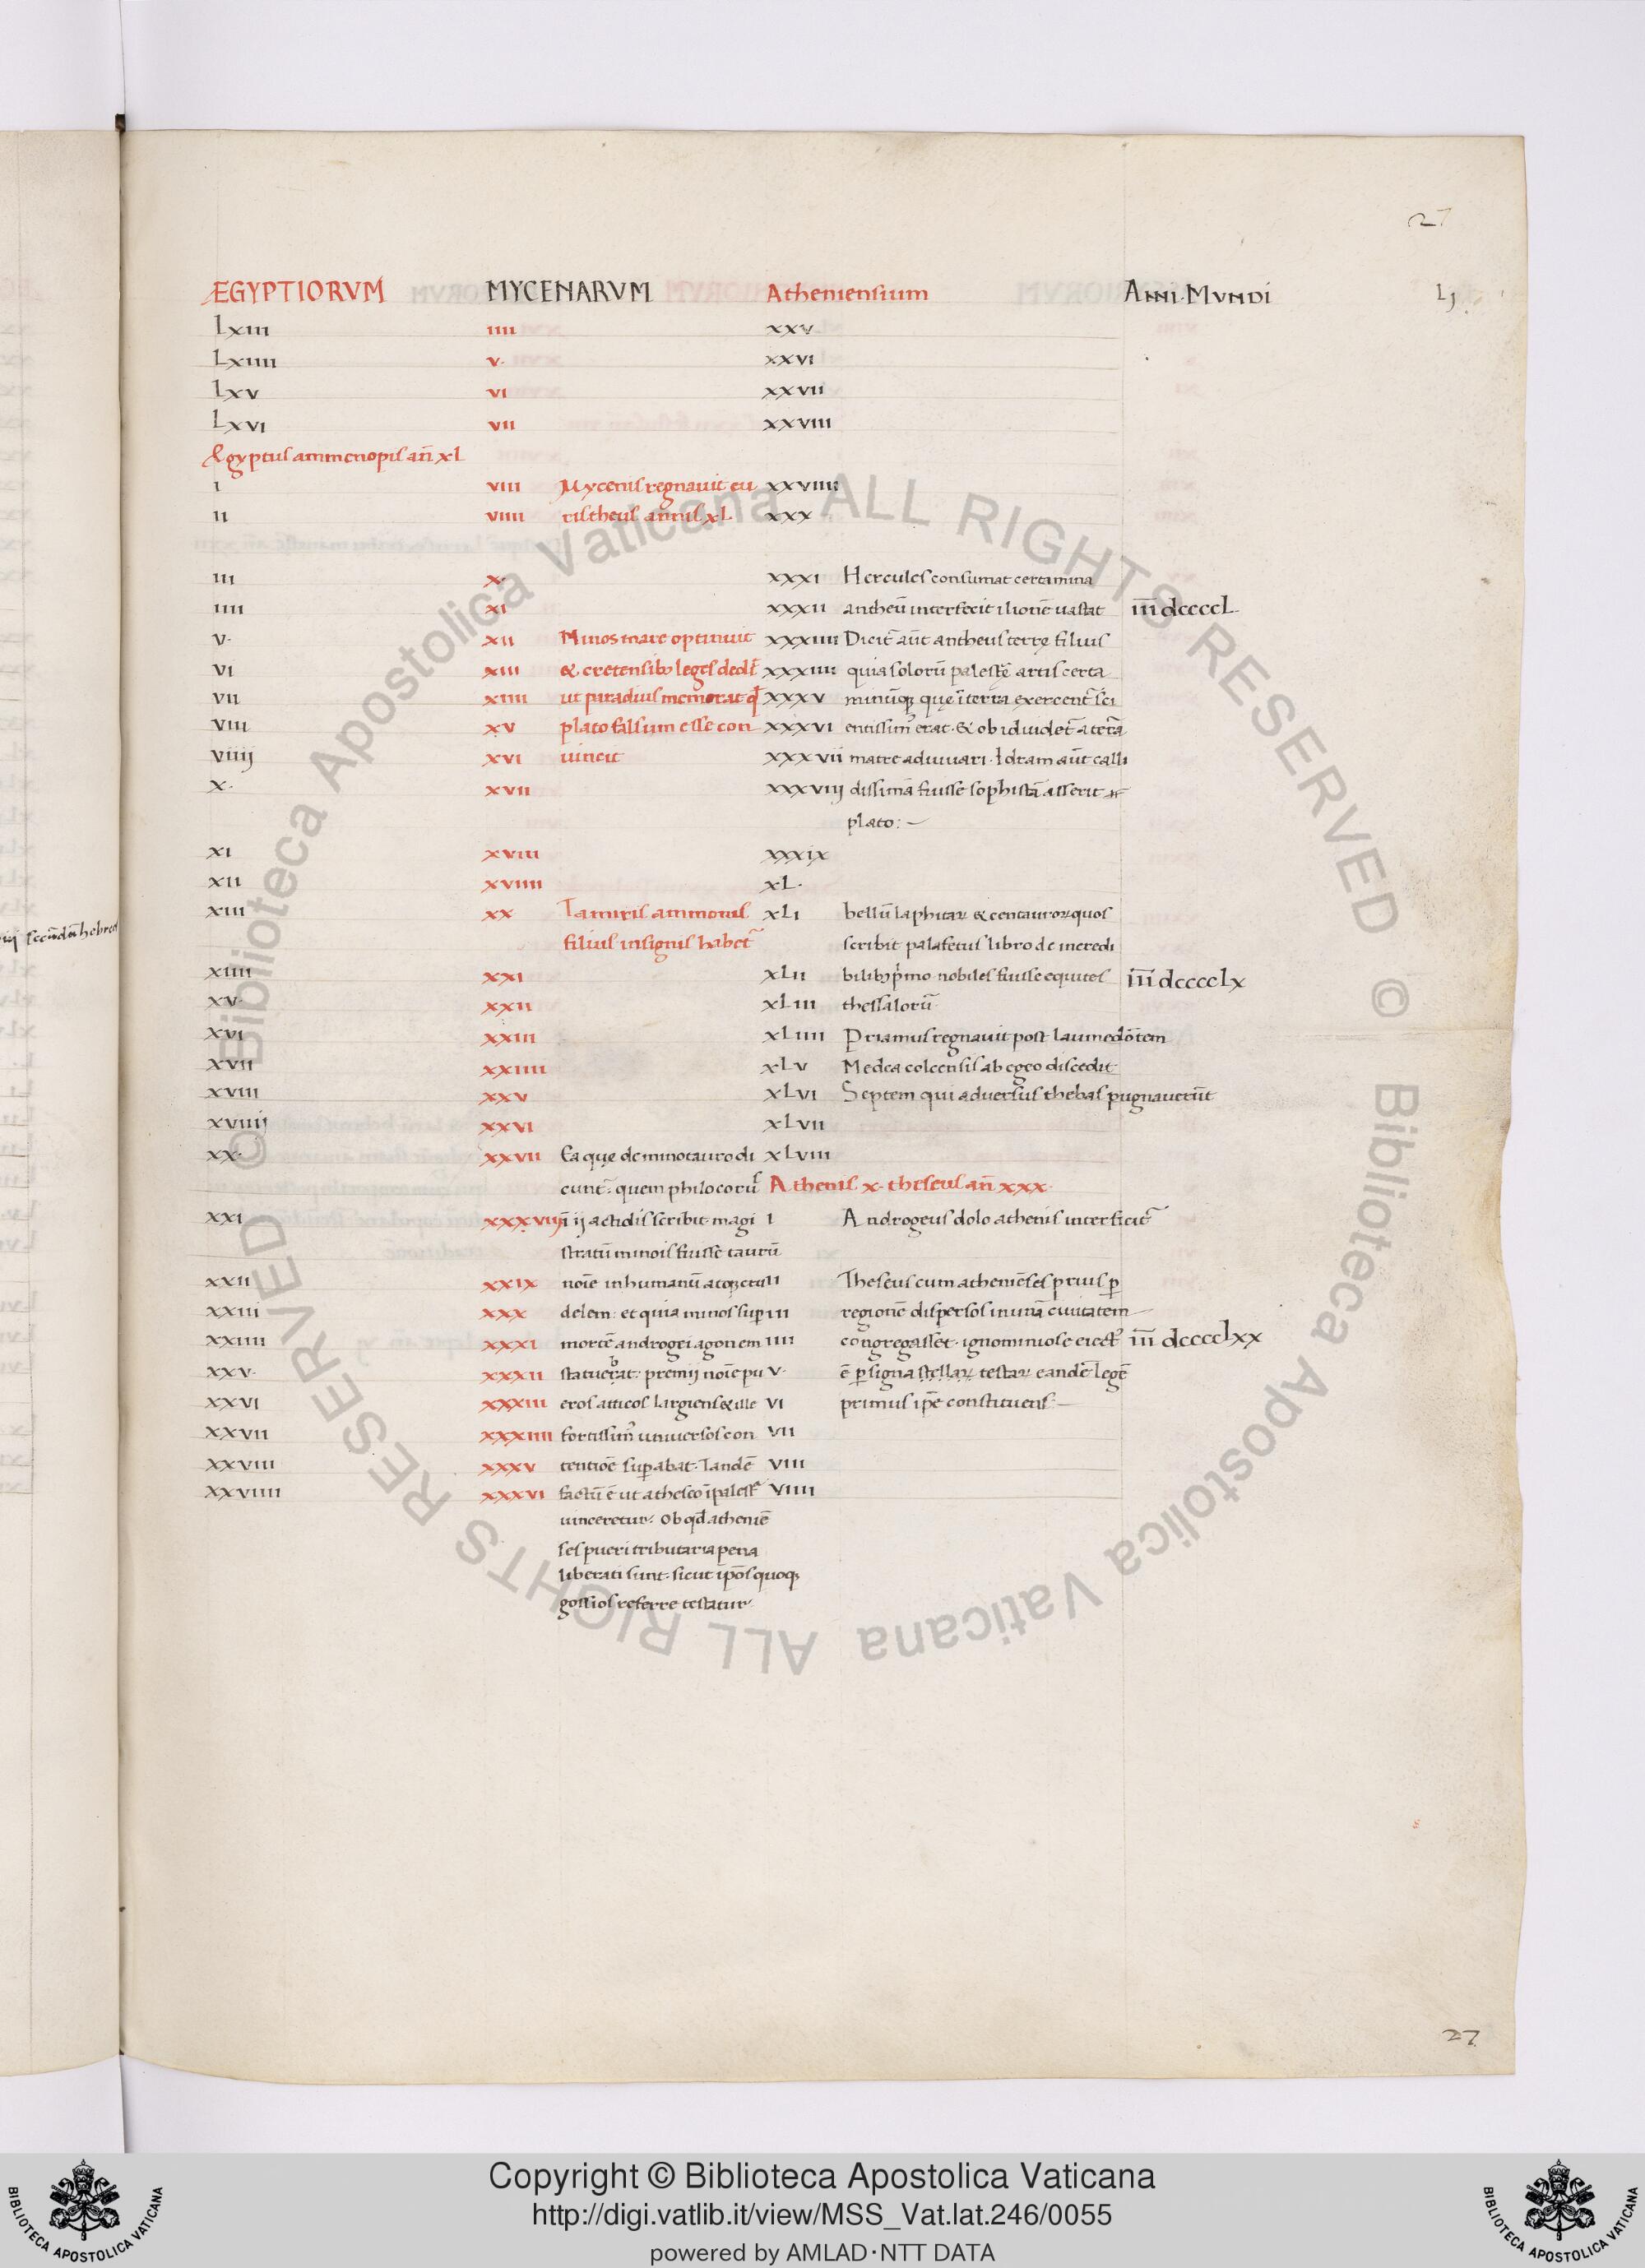 27
ÆGYPTIORVM MYCENARVM Atheniensium ANNI·MVNDI Lj
Lxiii iiii xxv
Lxiiii v· xxvi
Lxv vi xxvii
Lxvi vii xxviii
Ægyptus ammenopis an̄ xL
i viii Mycenis regnavit eu xxviiii
ii viiii ristheus annis xL xxx
iii x· xxxi Hercules consumat certamina
iiii xi xxxii antheū interfecit ilionē vastat īīī dccccL
v· xii Minos mare optinuit xxxiiii Dicit̄ aūt antheus terrę filius
vi xiii & cretensib; leges dedit xxxiiii quia solorū palestrę artis certa
vii xiiii ut paradius memorat qd̄ xxxv minūq; quę ī terra exercent̄ sci
viii xv plato falsum esse con xxxvi entissim⁹ erat· & ob id videt̄ a terra
viiij xvi vincit xxxvii matre adiuvari· Idram aūt calli
x· xvii xxxviij dissimā fuisse sophistā asserit
plato:—
xi xviii xxxix
xii xviiii xL·
xiii xx Tamiris ammonis xLi bellū laphitaꝝ & centauroꝝ quos
filius insignis habet̄ scribit palafetus libro de incredi
xiiii xxi xLii bilib; pⁱmo· nobiles fuisse equites īīī dccccLx
xv· xxii xLiii thessalorū
xvi xxiii xLiiii Priamus regnavit post laumedōtem
xvii xxiiii xLv Medea colcensis ab egeo discedit
xviii xxv xLvi Septem qui adversus thebas pugnaverūt
xviiij xxvi xLvii
xx· xxvii Ea quę de minotauro di xLviii
cunt̄: quem philocorus Athenis x· theseus an̄ xxx·
xxi xxxviij ī ij actidis scribit magi i Androgeus dolo athenis interficit̄
stratū minois fuisse taurū
xxii xxix noīe inhumanū atq; cru ii Theseus cum atheniēses prius ꝑ
xxiii xxx delem: et quia minos suꝑ iii regionē dispersos in unā civitatem
xxiiii xxxi mortē androgei agonem iiii congregasset· ignominiose eiect⁹ īīī dccccLxx
xxv· xxxii statuerat: premij noīe pu v· ē ꝑ signa stellaꝝ testaꝝ eandē legē
xxvi xxxiii eros atticos largiens & ille vi primus ip̄e constituens:—
xxvii xxxiiii fortissim⁹ universos con vii
xxviii xxxv tentioē suꝑabat· Tandē viii
xxviiii xxxvi factū ē ut a theseo ī palest̄ viiii
vinceretur· Ob qd̄ atheniē
ses pueri tributaria pena
liberati sunt· sicut ip̄os quoq;
gossios referre testatur·
27
© Biblioteca Apostolica Vaticana ALL RIGHTS RESERVED © Biblioteca Apostolica Vaticana ALL RIGHTS RESERVED
BIBLIOTECA APOSTOLICA VATICANA
Copyright © Biblioteca Apostolica Vaticana
http://digi.vatlib.it/view/MSS_Vat.lat.246/0055
powered by AMLAD·NTT DATA
BIBLIOTECA APOSTOLICA VATICANA